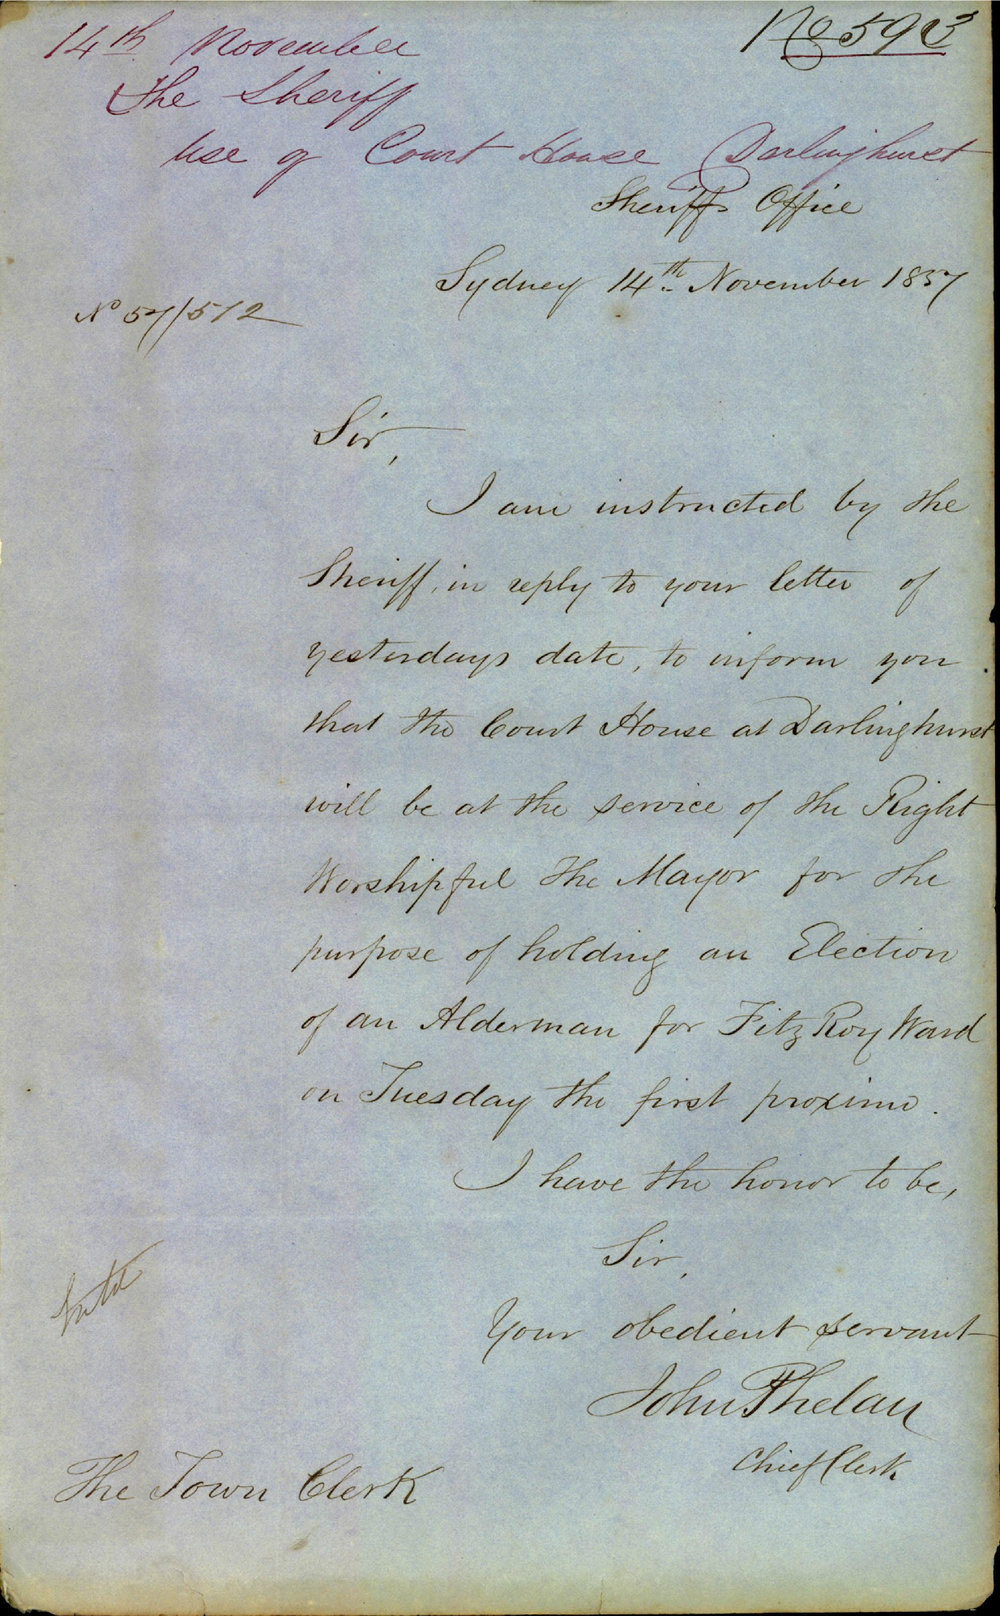 No 593
14th November
The Sheriff
Use of Court House Darlinghurst
Sheriffs Office
Sydney 14th November 1857
No 57/512
Sir,
I am instructed by the
Sheriff, in reply to your letter of
yesterdays date, to inform you
that the Court House at Darlinghurst
will be at the service of the Right
Worshipful The Mayor for the
purpose of holding an Election
of an Alderman for FitzRoy Ward
on Tuesday the first proximo.
I have the honor to be,
Sir,
Your obedient servant
John Phelan
Chief Clerk
The Town Clerk